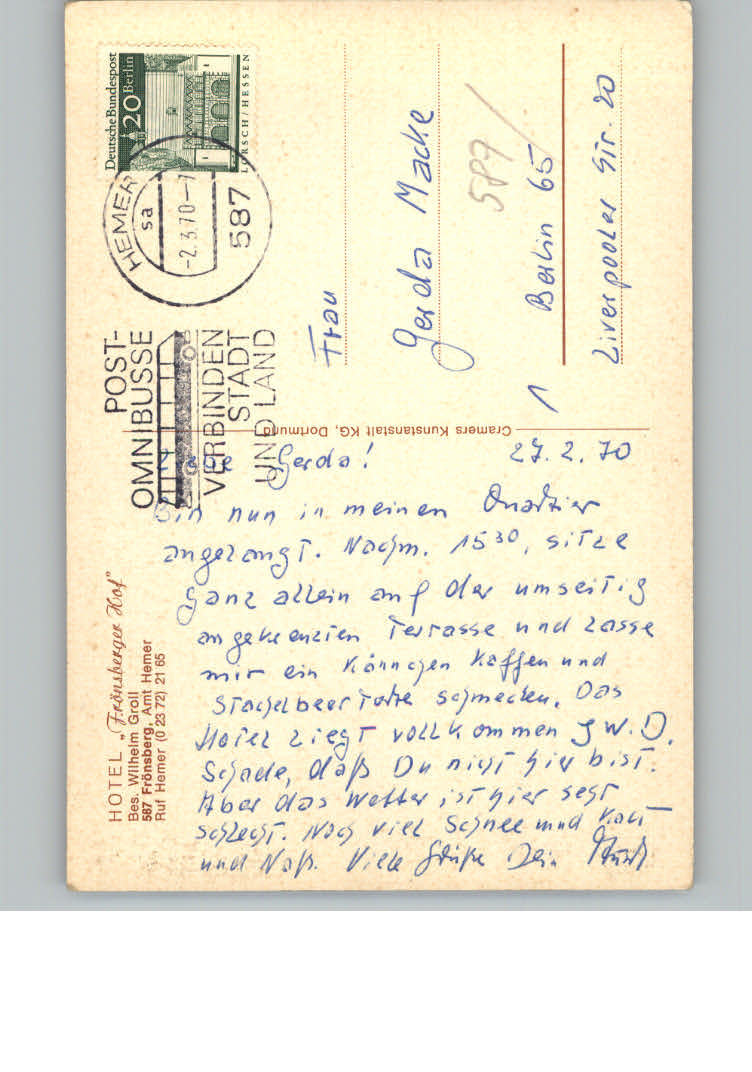 HOTEL „Frönsberger Hof"
Bes. Wilhelm Groll
587 Frönsberg, Amt Hemer
Ruf Hemer (0 23 72) 21 65
Liebe Gerda! 27. 2. 70
Bin nun in meinen Quartier
angelangt. Nachm. 15 30, sitze
ganz allein auf der umseitig
angekreuzten Terrasse und lasse
mir ein Kännchen Kaffee und
Stachelbeertorte schmecken. Das
Hotel liegt vollkommen J. W. D.
Schade, daß Du nicht hier bist.
Aber das Wetter ist hier sehr
schlecht. Noch viel Schnee und kalt
und Naß. Viele Grüße Dein
Cramers Kunstanstalt KG, Dortmund
POST-
OMNIBUSSE
VERBINDEN
STADT
UND LAND
HEMER
sa
-2.3.70-7
587
Deutsche Bundespost
20 Berlin
LORSCH/HESSEN
Frau
Gerda Macke
587
1 Berlin 65
Liverpooler Str. 20